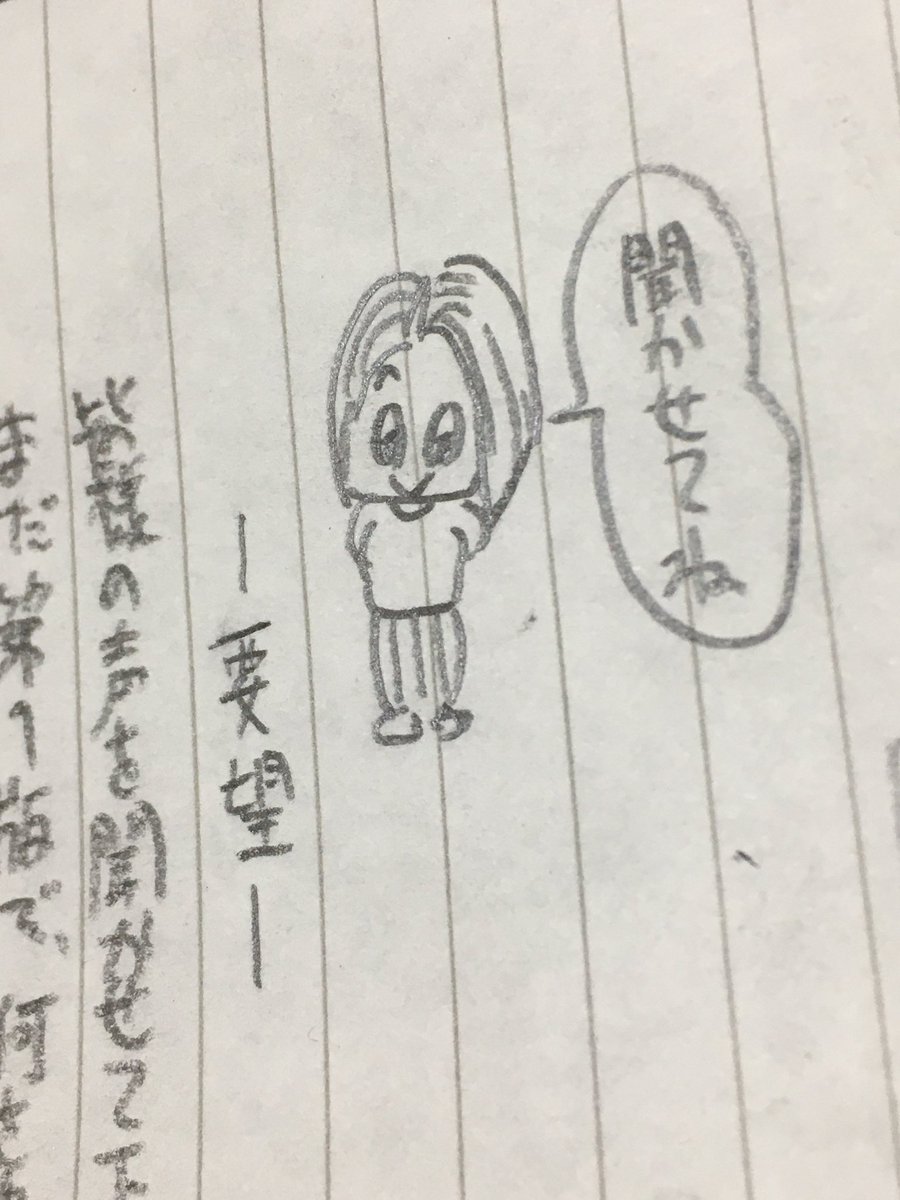 聞かせてね
ー要望ー
皆様の声を聞かせて下
まだ第1版で、何を